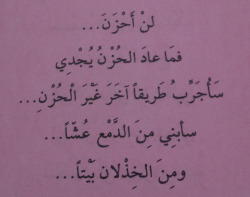 لنْ أَحْزَنَ...
فمَا عادَ الحُزْنُ يُجْدِي
سَأُجَرِّبُ طَريقاً آخَرَ غَيْرَ الْحُزْنِ...
سأبنِي مِنَ الدَّمْعِ عُشّاً...
ومِنَ الخِذْلان بَيْتاً...